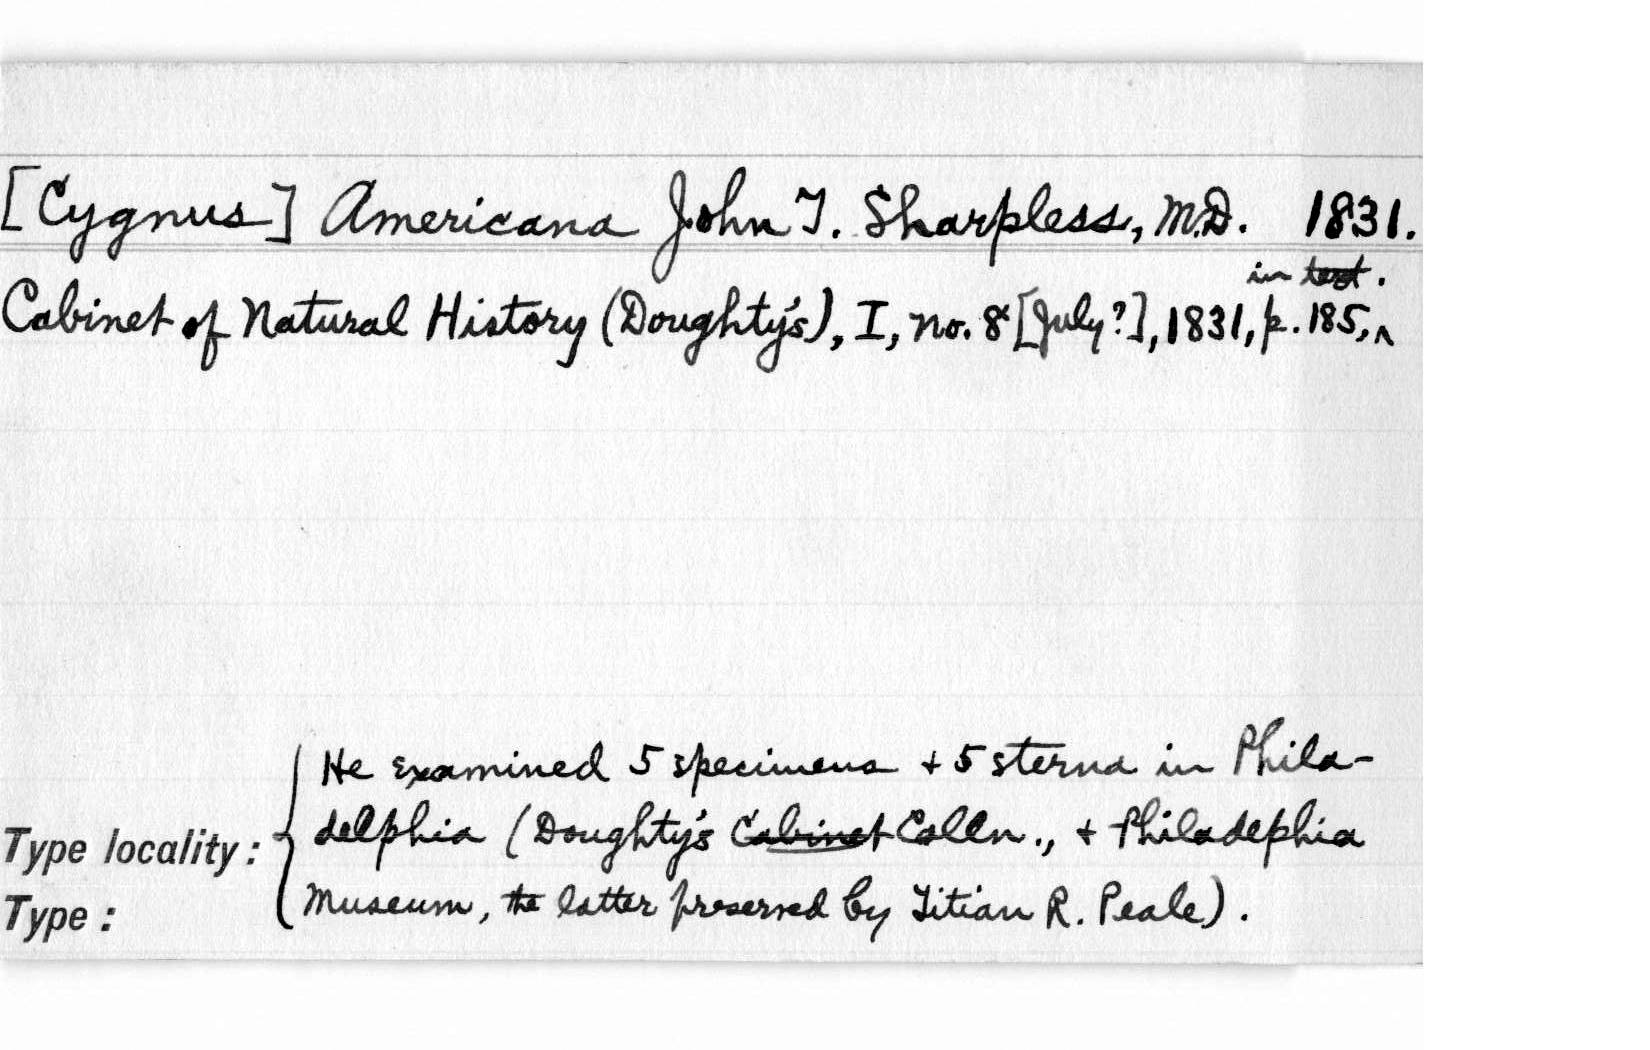 [Cygnus] Americana John T. Sharpless, M.D. 1831.
in text.
Cabinet of Natural History (Doughty's), I, no. 8 [July?], 1831, p. 185, ^
He examined 5 specimens + 5 sterna in Phila-
delphia (Doughty's Cabinet Colln., + Philadephia
Museum, the latter preserved by Titian R. Peale).
Type locality:
Type: